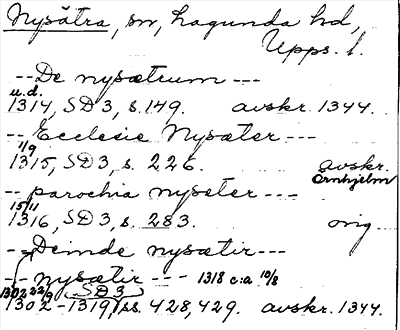 Nysätra, sn, Lagunda hd,
Upps. l.
-- De nysætrum ---
u.d.
1314, SD 3, s. 149. avskr. 1344.
-- Ecclesie Nysæter ---
1/9
1315, SD 3, s. 226. avskr.
Örnhjelm
-- parochia nyseter ---
15/11
1316, SD 3, s. 283. orig.
-- Deinde nysætir ---
-- nysætir --- 1318 c:a 10/8
1302 22/9 SD 3
1302-1319, ss. 428, 429. avskr. 1344.